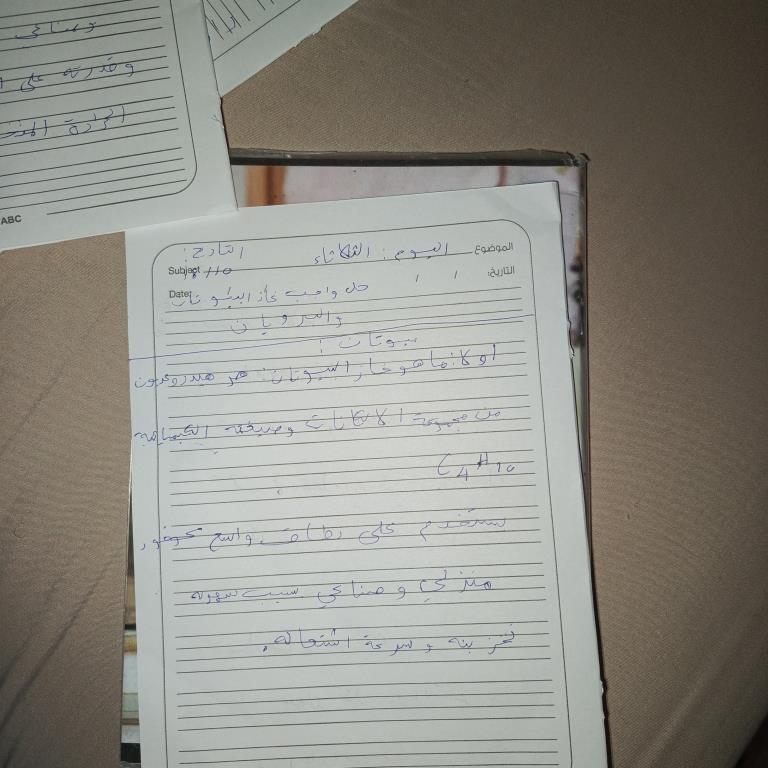 وصناعي
وقدرته على
الحرارة
ABC
الموضوع
اليوم: الثلاثاء
التاريخ:
Subject
التاريخ: / /
Date:
حل واجب غاز البيوتان
والبروبان
بيوتان:
أولا: ما هو غاز البيوتان: هو هيدروكربون
من مجموعة الالكانات وصيغته الكيميائية
C4H10
يستخدم على نطاق واسع كوقود
منزلي وصناعي بسبب سهولة
تخزينه وسرعة اشتعاله.